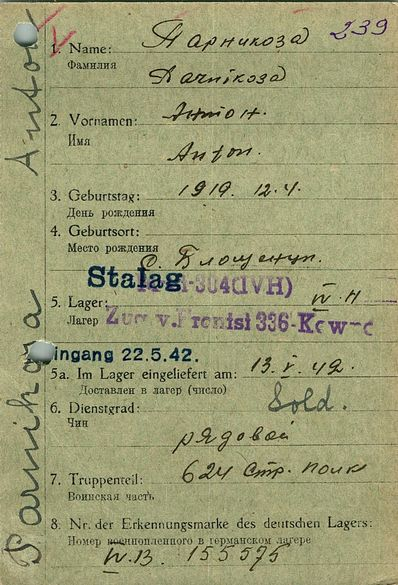 239
1. Name: Парникоза
Фамилия
Parnikoza
2. Vornamen: Антон.
Имя
Anton.
3. Geburtstag: 1919. 12.4.
День рождения
4. Geburtsort:
Место рождения
Stalag 304(IVH)
5. Lager: IV H
Лагер
Zug v. Frontst 336-
Eingang 22.5.42.
5a. Im Lager eingeliefert am: 13.V.42.
Доставлен в лагер (число)
6. Dienstgrad: Sold.
Чин
рядовой
7. Truppenteil: 624 Стр. полк
Воинская часть
8. Nr. der Erkennungsmarke des deutschen Lagers:
Номер военнопленного в германском лагере
IV.B. 155575
Parnikoza Anton